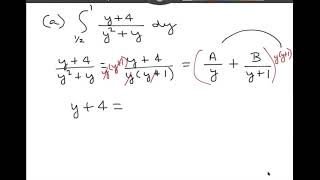 (a) ∫_{1/2}^{1} \frac{y+4}{y^2+y} dy
\frac{y+4}{y^2+y} = y(y+1) \frac{y+4}{y(y+1)} = \left( \frac{A}{y} + \frac{B}{y+1} \right) y(y+1)
y+4 =